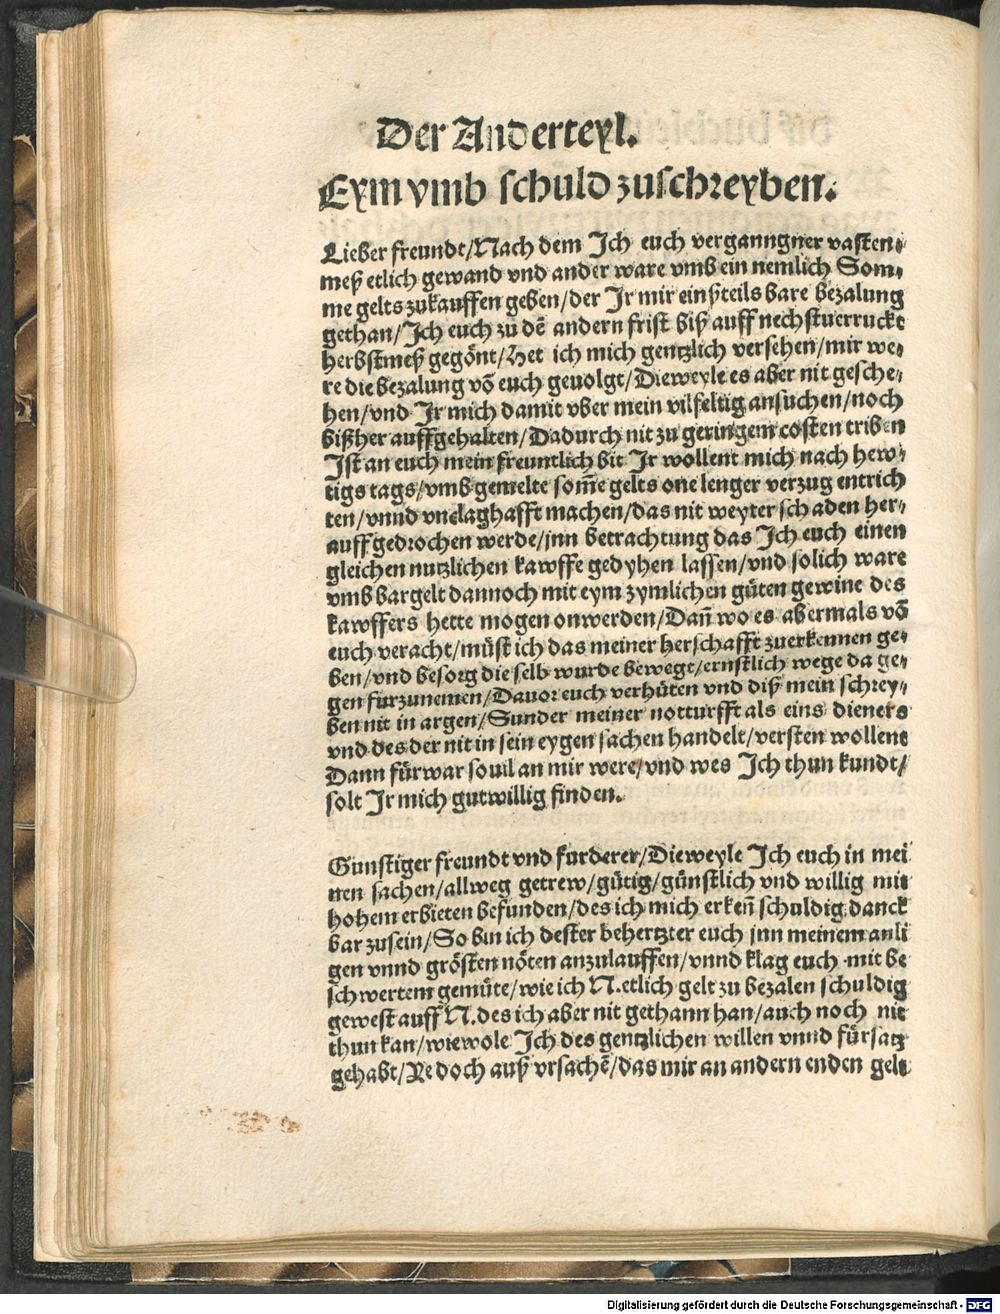 Der Anderteyl.
Eym vmb schuld zuschreyben.
Lieber freundt/Nach dem Ich euch verganngner vasten⸗
meß etlich gewand vnd ander ware vmb ein nemlich Som⸗
me gelts zukauffen geben/der Ir mir einßteils bare bezalung
gethan/Ich euch zu dē andern frist biß auff nechstuerruckt
herbstmeß gegönt/Het ich mich gentzlich versehen/mir we⸗
re die bezalung vō euch geuolgt/Dieweyle es aber nit gesche⸗
hen/vnd Ir mich damit vber mein vilfeltig ansuchen/noch
bißher auffgehalten/Dadurch nit zu geringem costen triben
Ist an euch mein freuntlich bit Ir wollent mich nach hew⸗
tigs tags/vmb gemelte som̄e gelts one lenger verzug entrich
ten/vnnd vnclaghafft machen/das nit weyter schaden her⸗
auff gedrochen werde/jnn betrachtung das Ich euch einen
gleichen nutzlichen kawffe gedyhen lassen/vnd solich ware
vmb bargelt dannoch mit eym zymlichen güten gewine des
kawffers hette mogen onwerden/Dan̄ wo es abermals vō
euch veracht/müst ich das meiner herschafft zuerkennen ge⸗
ben/vnd besorg die selb wurde bewegt/ernstlich wege da ge⸗
gen furzunemen/Dauor euch verhüten vnd diß mein schrey⸗
ben nit in argen/Sunder meiner notturfft als eins dieners
vnd des der nit in sein eygen sachen handelt/versten wollent
Dann fürwar souil an mir were/vnd wes Ich thun kundt/
solt Ir mich gutwillig finden.
Gunstiger freundt vnd furderer/Dieweyle Ich euch in mei
nen sachen/allweg getrew/gütig/günstlich vnd willig mit
hohem erbieten befunden/des ich mich erken̄ schuldig danck
bar zusein/So bin ich dester behertzter euch jnn meinem anli
gen vnnd grösten nöten anzulauffen/vnnd klag euch mit be
schwertem gemüte/wie ich N.etlich gelt zu bezalen schuldig
gewest auff N.des ich aber nit gethann han/auch noch nit
thun kan/wiewole Ich des gentzlichen willen vnnd fürsatz
gehabt/Yedoch auß vrsachē/das mir an andern enden gelt
Digitalisierung gefördert durch die Deutsche Forschungsgemeinschaft - DFG